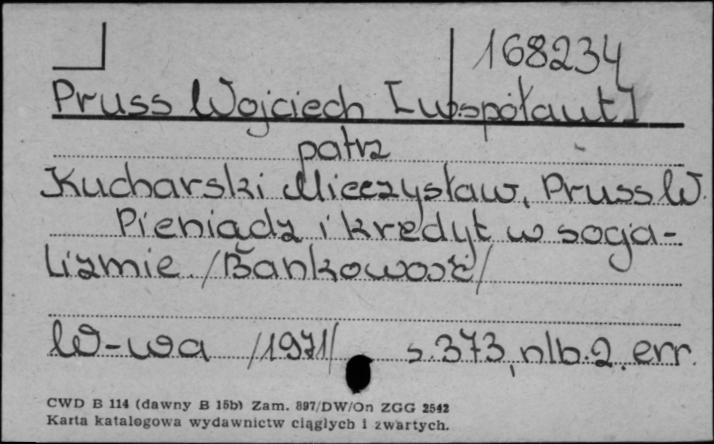 168234
Pruss Wojciech [współaut]
patrz
Kucharski Mieczysław, Pruss W.
Pieniądz i kredyt w socja-
lizmie /Bankowość/
W-wa /1971/ s. 373, nlb. 2, err.
CWD B 114 (dawny B 15b) Zam. 897/DW/On ZGG 2542
Karta katalogowa wydawnictw ciągłych i zwartych.